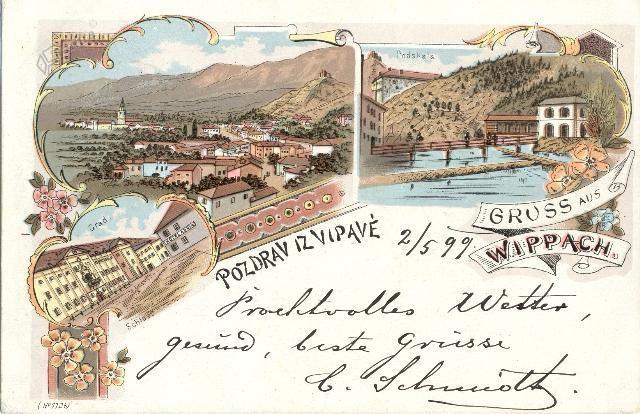 Podskala
Grad.
Schloss
POZDRAV IZ VIPAVE
2/5 99
GRUSS AUS
WIPPACH
Prachtvolles Wetter,
gesund, beste Grüsse
C. Schmidt.